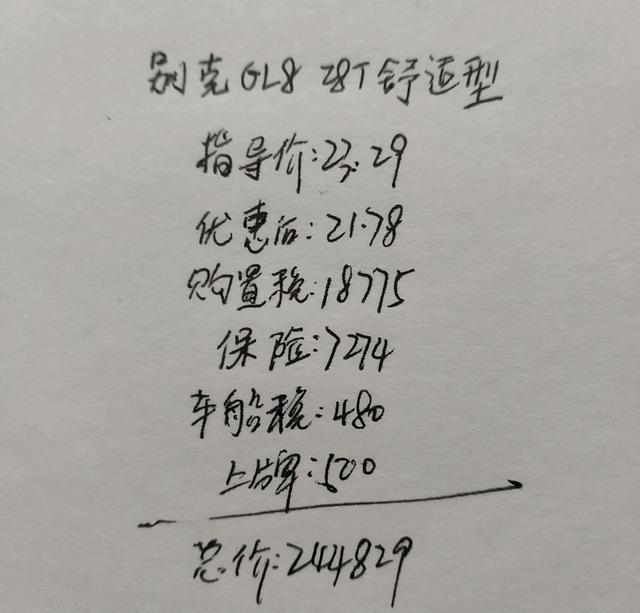 别克GL8 28T舒适型
指导价:23.29
优惠后:21.78
购置税:18775
保险:7274
车船税:480
上牌:500
总价:244829